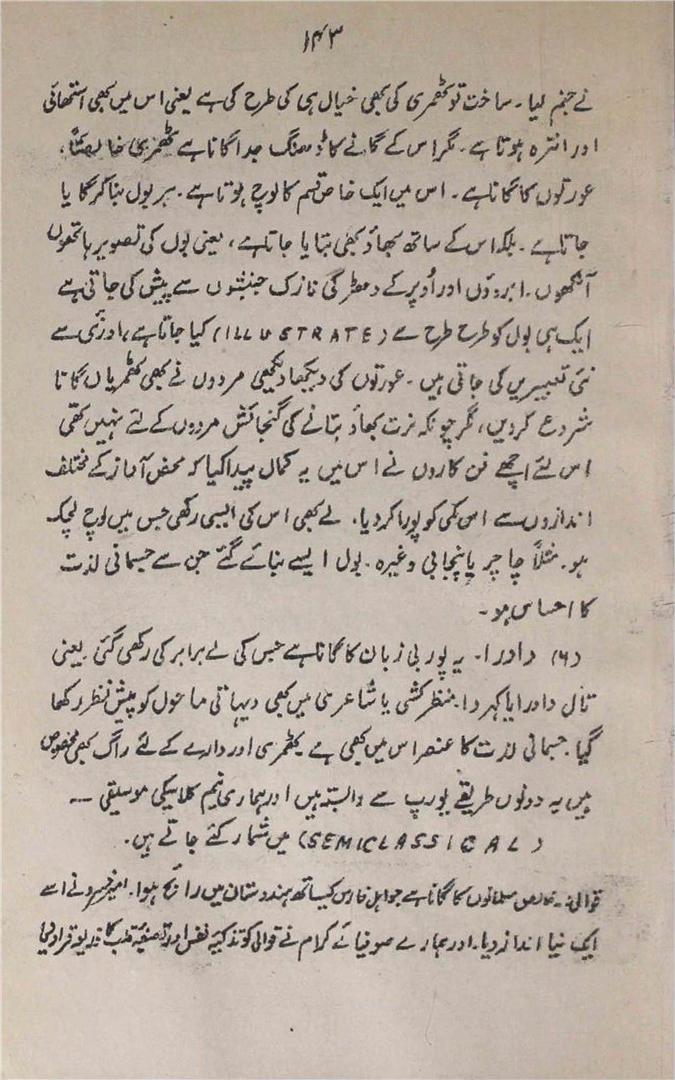 ۱۴۳
نے جنم لیا۔ ساخت تو ٹھمری کی بھی خیال ہی کی طرح کی ہے یعنی اس میں بھی استھائی
اور انترہ ہوتا ہے۔ مگر اس کے گانے کا ڈھنگ جداگانا ہے ٹھمری خالصتاً،
عورتوں کا گانا ہے۔ اس میں ایک خاص قسم کا لوچ ہوتا ہے۔ ہر بول بنا کر گایا
جاتا ہے۔ بلکہ اس کے ساتھ بھاؤ بھی بتایا جاتا ہے، یعنی بول کی تصویر ہاتھوں
آنکھوں۔ ابروؤں اور اُوپر کے دھڑ کی نازک جنبشوں سے پیش کی جاتی ہے
ایک ہی بول کو طرح طرح سے (ILLUSTRATE) کیا جاتا ہے، اور نئی سے
نئی تعبیریں کی جاتی ہیں۔ عورتوں کی دیکھا دیکھی مردوں نے بھی ٹھمریاں گانا
شروع کر دیں، مگر چونکہ نرت بھاؤ بتانے کی گنجائش مردوں کے لئے نہیں تھی
اس لئے اچھے فن کاروں نے اس میں یہ کمال پیدا کیا کہ محض آواز کے مختلف
اندازوں سے اس کمی کو پورا کر دیا۔ لے بھی اس کی ایسی رکھی جس میں لوچ لچک
ہو۔ مثلاً چاچر یا پنجابی وغیرہ۔ بول ایسے بنائے گئے جن سے جسمانی لذت
کا احساس ہو۔
(۶) دادرا۔ یہ پوربی زبان کا گانا ہے جس کی لے برابر کی رکھی گئی یعنی
تال دادرا یا کہروا۔ منظر کشی یا شاعری میں بھی دیہاتی ماحول کو پیش نظر رکھا
گیا۔ جسمانی لذت کا عنصر اس میں بھی ہے۔ ٹھمری اور دادرے کے لئے راگ بھی مخصوص
ہیں یہ دونوں طریقے پورب سے وابستہ ہیں اور ہماری نیم کلاسیکی موسیقی ---
(SEMICLASSICAL) میں شمار کئے جاتے ہیں۔
قوالی:۔ خالص مسلمانوں کا گانا ہے جو اہل فارس کیساتھ ہندوستان میں رائج ہوا۔ امیر خسرو نے اسے
ایک نیا انداز دیا۔ اور ہمارے صوفیائے کرام نے قوالی کو تذکیۂ نفس اور تصفیۂ قلب کا ذریعہ قرار دیا